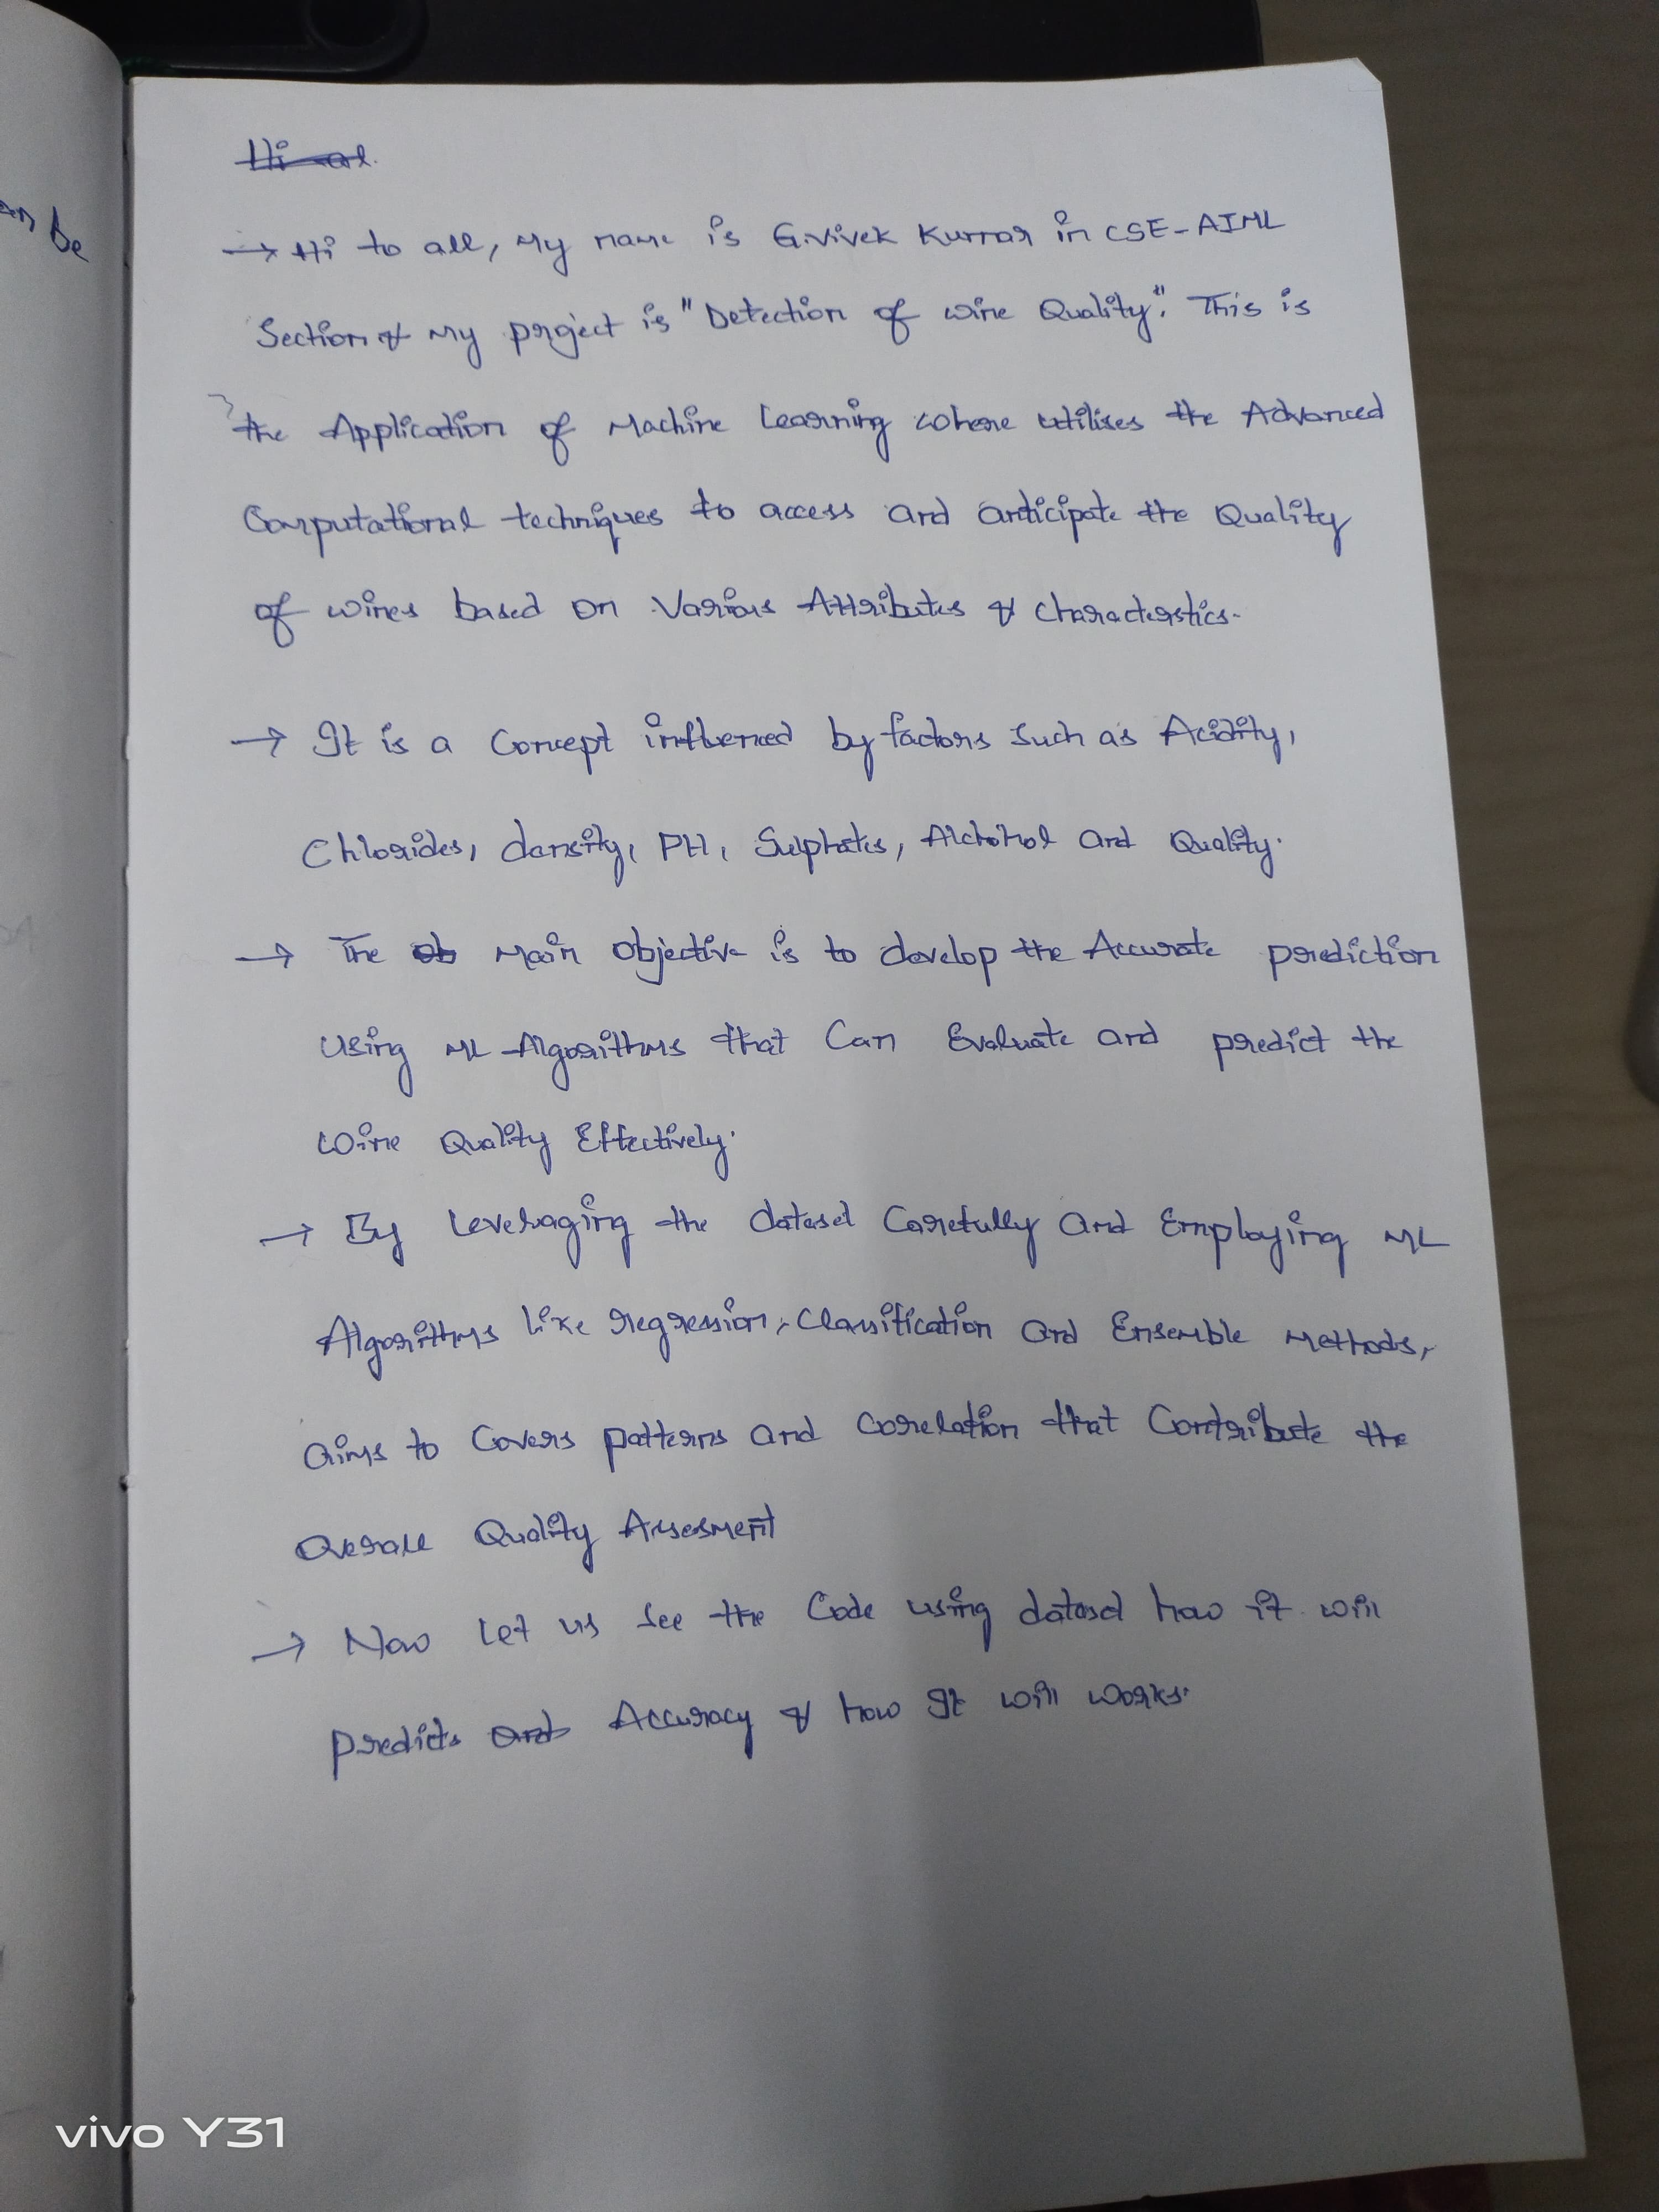 an be
Hi al.
→ Hi to all, My name is G.Vivek Kumar in CSE-AIML
Section & My project is "Detection of wine Quality". This is
the Application of Machine Learning where utilises the Advanced
Computational techniques to access and anticipate the Quality
of wines based on Various Attributes & characterstics.
→ It is a Concept influenced by factors such as Acidity,
Chlorides, density, PH, Sulphates, Alchohol and Quality.
→ The ob Main Objective is to develop the Accurate prediction
Using ML Algorithms that Can Evaluate and predict the
Wine Quality Effectively.
→ By Leveraging the dataset Carefully and Employing ML
Algorithms like regression, Classification and Ensemble Methods,
aims to Covers patterns and Corelation that Contribute the
Overall Quality Assesment
→ Now Let us see the Code using dataset how it will
predicts and Accuracy & how It will works.
vivo Y31